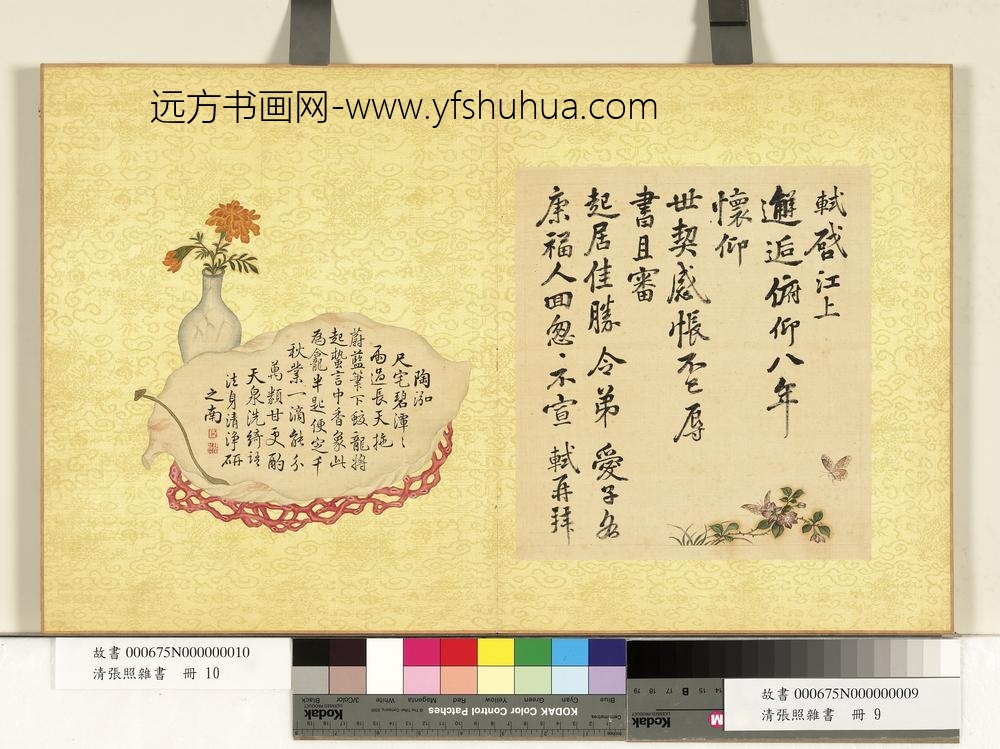 远方书画网-www.yfshuhua.com
軾啓江上
邂逅俯仰八年
懷仰
世契感悵不已辱
書且審
起居佳勝 令弟 愛子各
康福人回怱〻不宣 軾再拜
陶泓
尺宅碧潭〻
雨過長天拖
蔚藍筆下蛟龍將
起蟄言中香象此
為龕半匙便定千
秋業一滴能分
萬類甘更酌
天泉洗綺語
法身清淨研
之南
故書 000675N000000010
清張照雜書 冊 10
故書 000675N000000009
清張照雜書 冊 9
KODAK Color Control Patches
Kodak
LICENSED PRODUCT
Blue
Cyan
Green
Yellow
Red
Magenta
White
3/Color
Black
Centimetres
Kodak
LICENSED PRODUCT
B
M